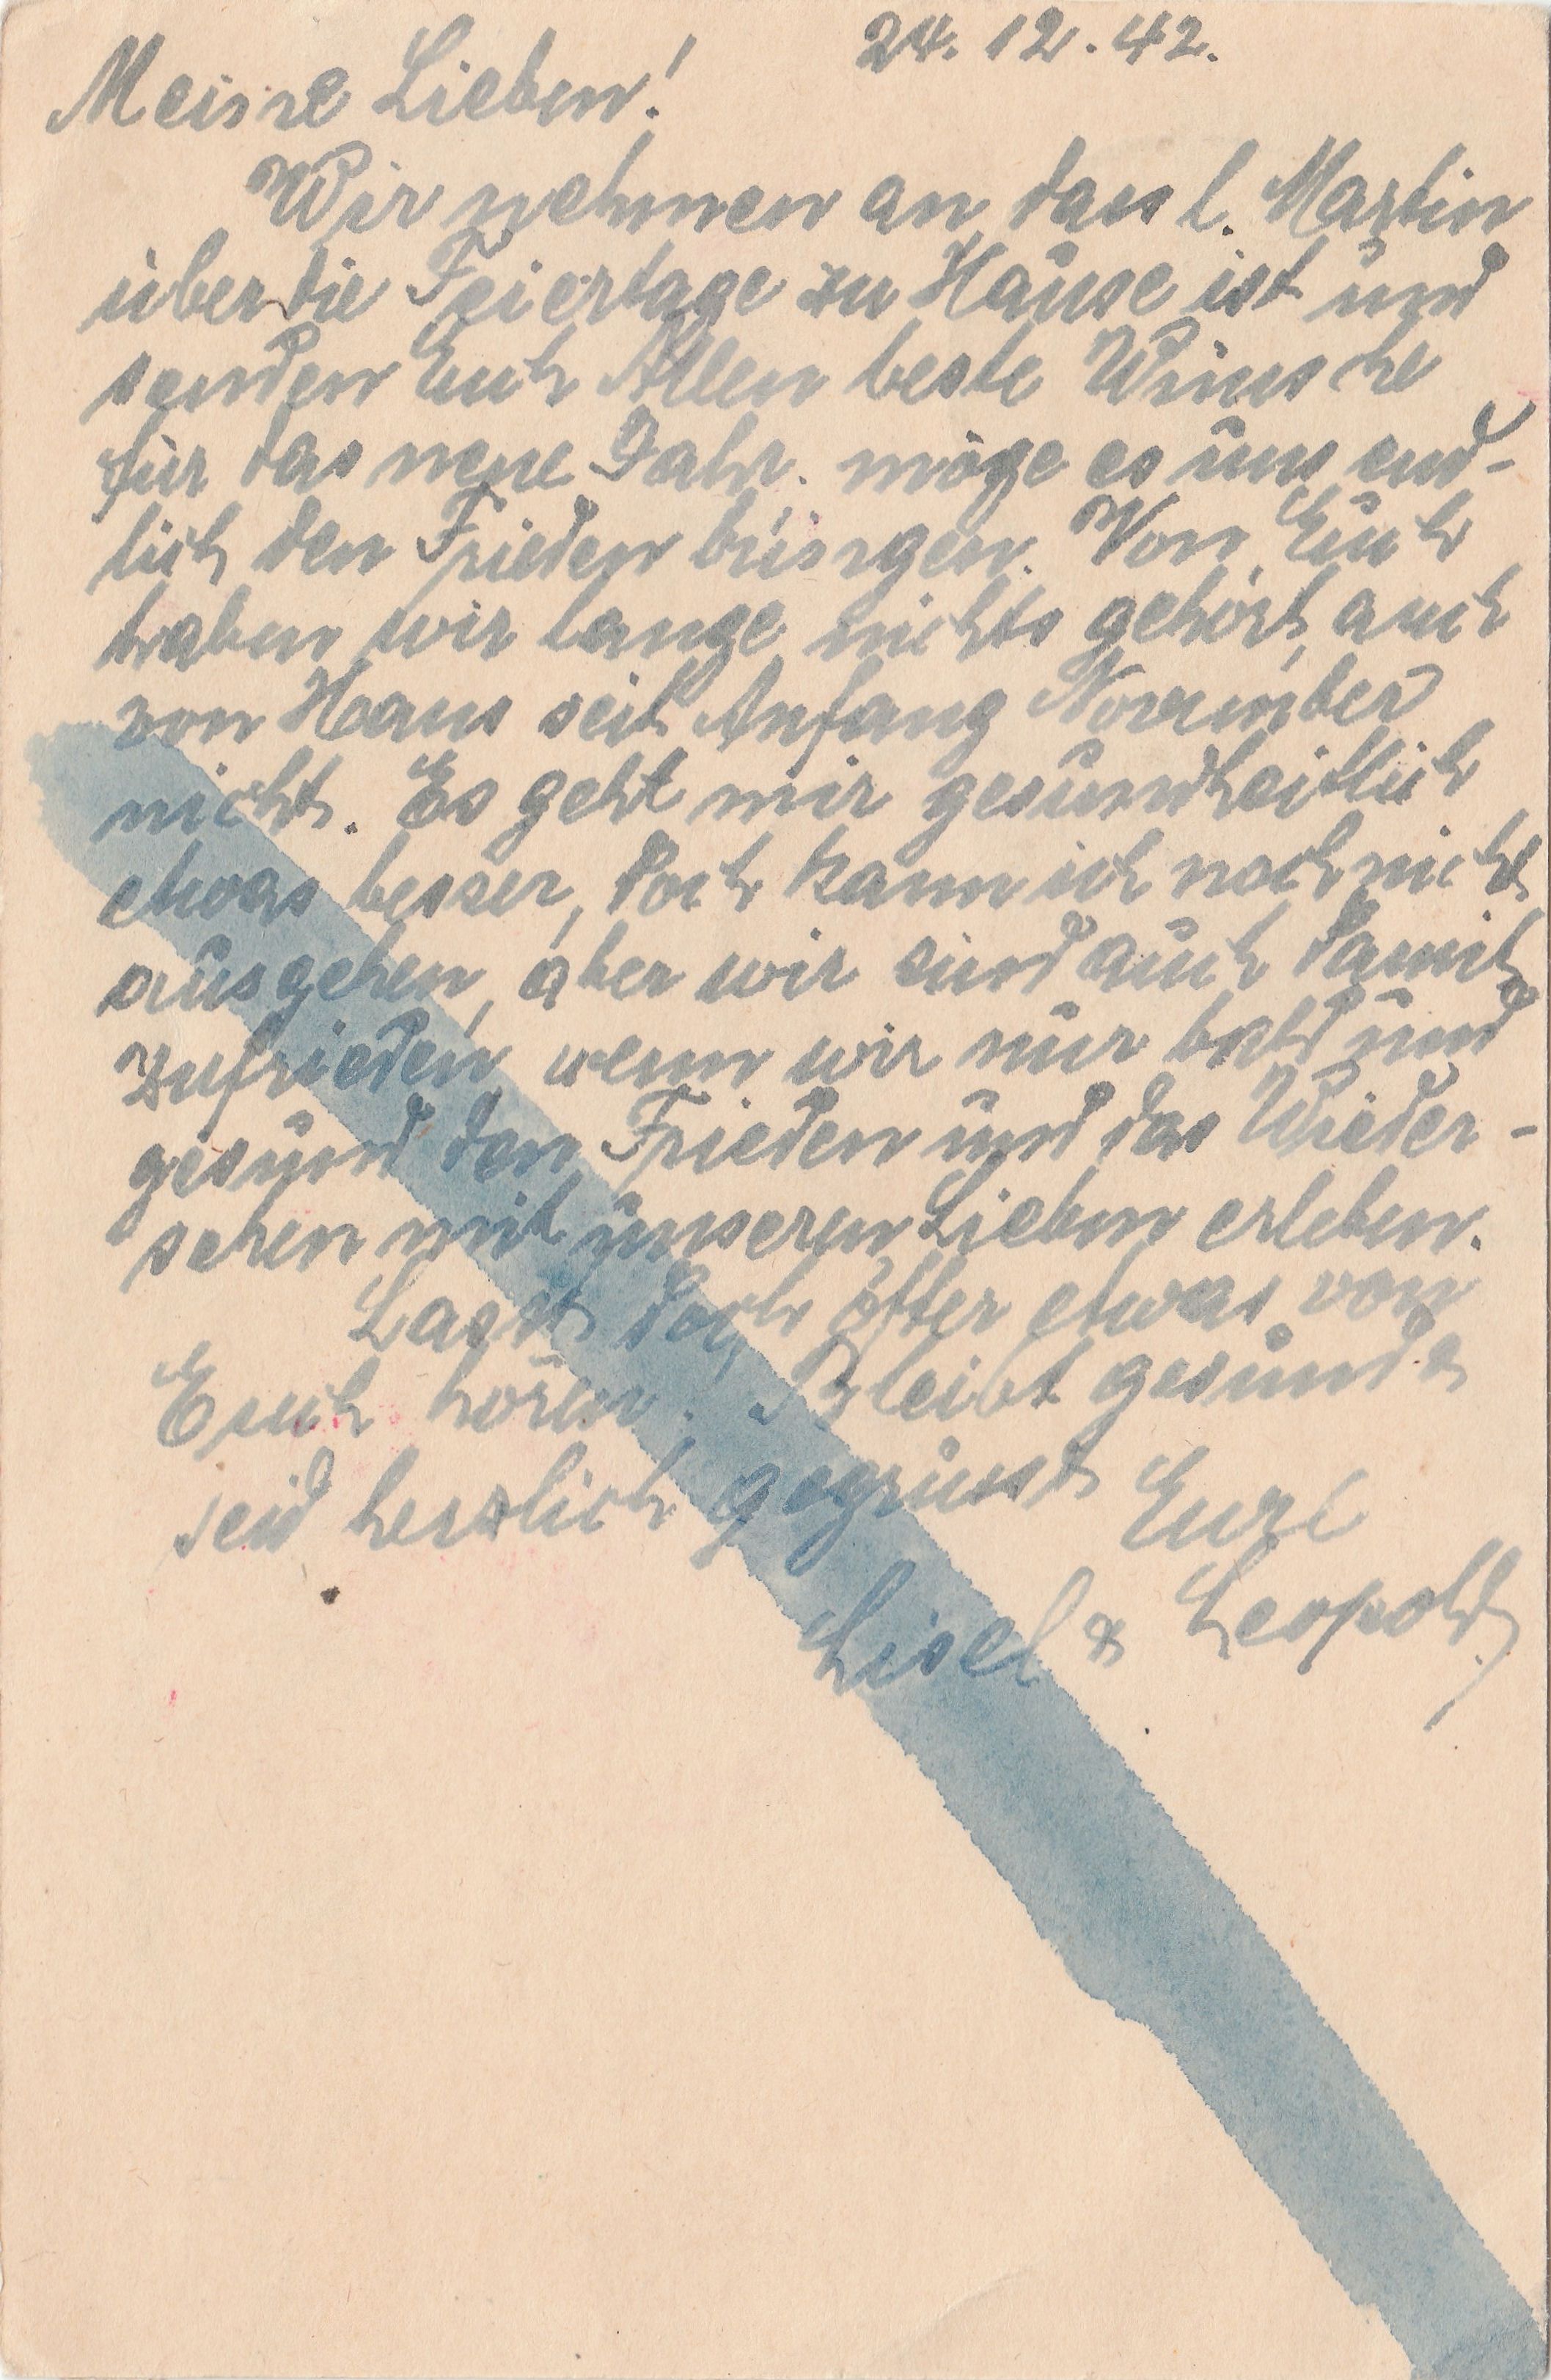 24. 12. 42.
Meine Lieben!
Wir nehmen an, dass l. Martin
über die Feiertage zu Hause ist und
senden Euch Allen beste Wünsche
für das neue Jahr. möge es uns end-
lich den Frieden bringen. Von Euch
haben wir lange nichts gehört, auch
von Hans seit Anfang November
nicht. Es geht mir gesundheitlich
etwas besser, doch kann ich noch nicht
ausgehen, aber wir sind auch damit
zufrieden, wenn wir nur bald und
gesund den Frieden und das Wieder-
sehen mit unseren Lieben erleben.
Lasst doch öfter etwas von
Euch hören. Bleibt gesund &
seid herzlich gegrüsst Eure
Lisel & Leopold